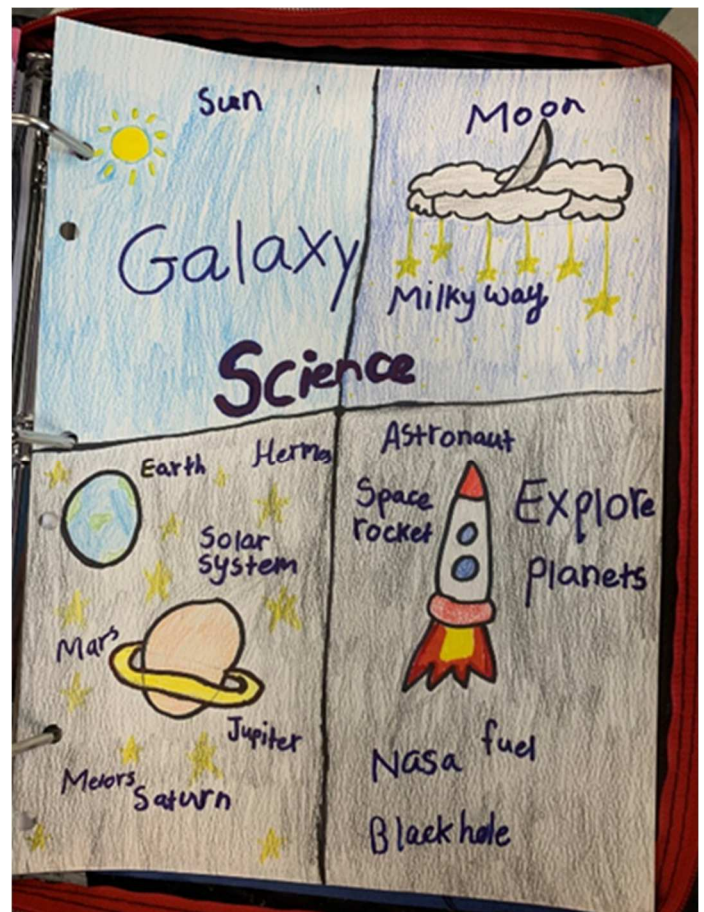 Sun
Galaxy
Moon
Milky way
Science
Earth
Hermes
Solar
system
Mars
Jupiter
Metors
Saturn
Astronaut
Space
rocket
Explore
planets
Nasa
fuel
Black hole